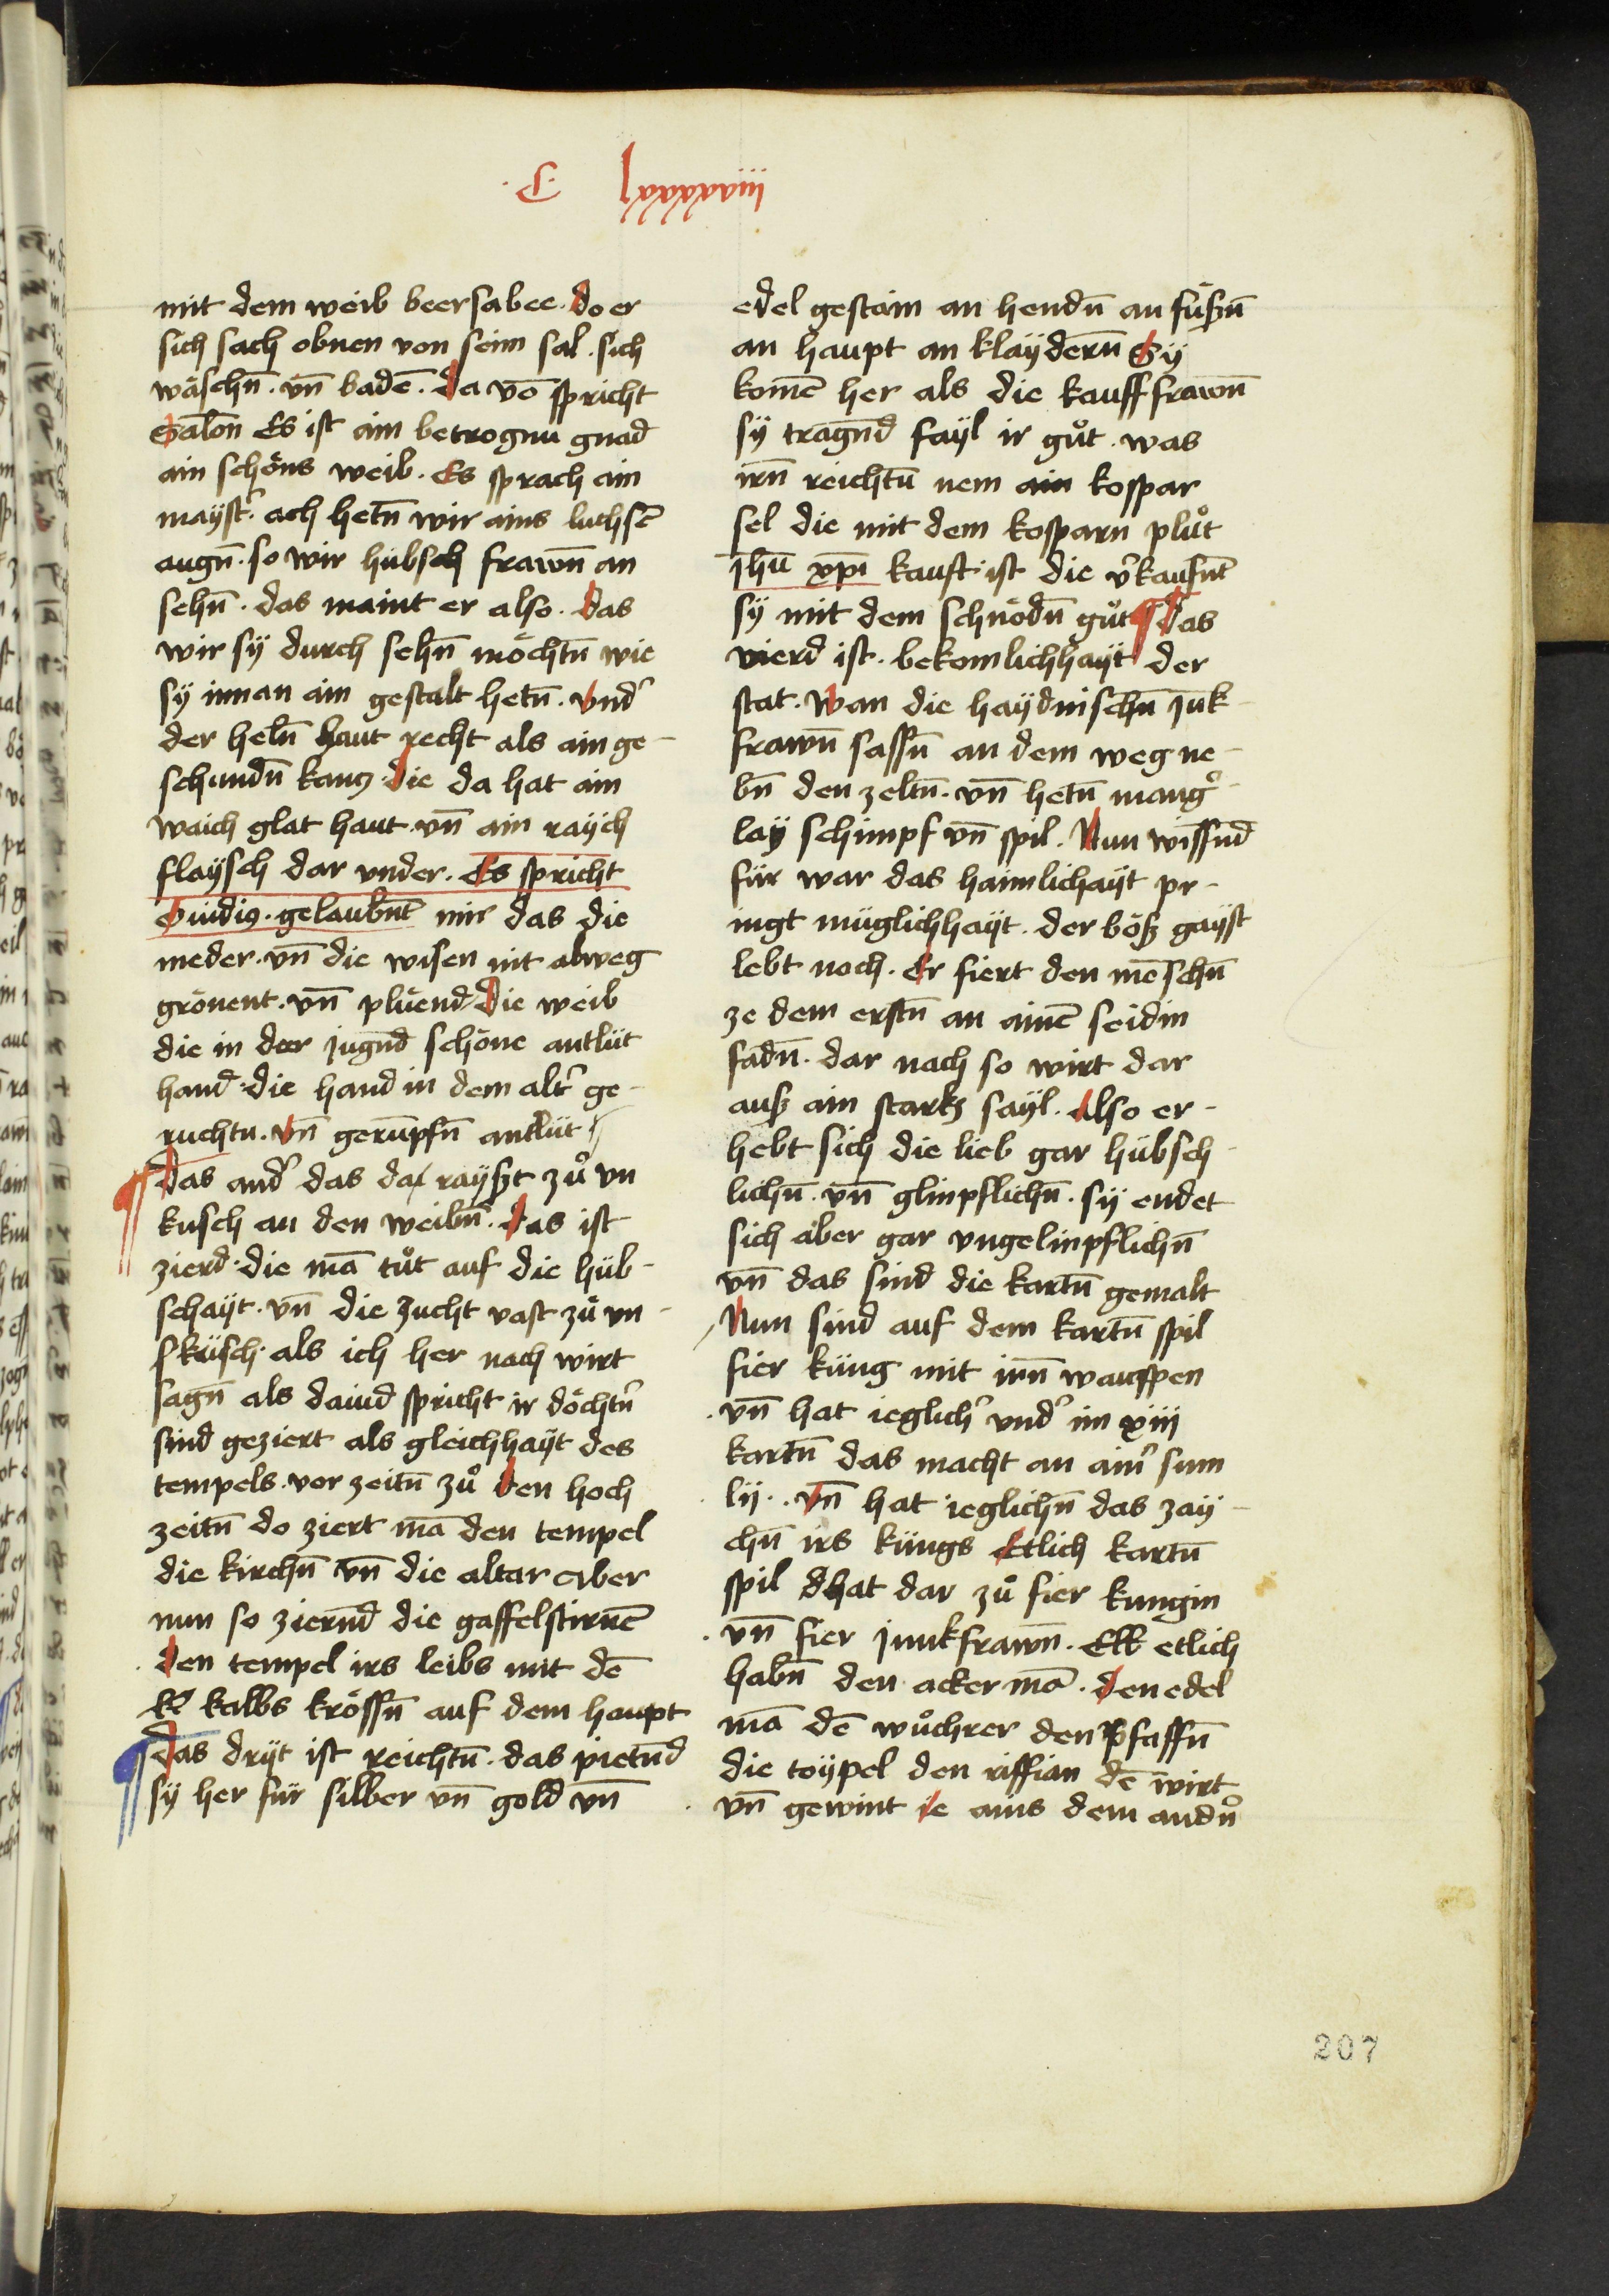 ·C· lxxxxxviiii
mit dem weib beersabee. do er
sich sach obnen von seim sal. sich
wäschn̄. vn̄ badē. da vō spricht
Salōn Es ist ain betrognu gnad
ain schöns weib. Es sprach ain
mayst̾. ach hetn̄ wir ains luchsē
augn̄. so wir hübsch frawn̄ an
sehn̄. das maint er also. das
wir sÿ durch sehn̄ möchtn̄ wie
sÿ innan ain gestalt hetn̄. vnd̾
der heln̄ haut recht als ain ge-
schundn̄ kacz. die da hat ain
waich glat haut. vn̄ ain raÿch
flaÿsch dar vnder. Es spricht
Ouidiꝯ. gelaubn̄t mir das die
meder. vn̄ die wisen nit alweg
grönent. vn̄ plüend. die weib
die in der jugnd̄ schöne antlüt
hand. die hand in dem alt̾ ge-
ruchtn. vn̄ gerumpfn̄ antlüt
¶ das and̾ das da raÿszt zů vn
kusch an den weibn̄. das ist
zierd. die mā tůt auf die hüb-
schaÿt. vn̄ die zucht vast zů vn-
kusch. als ich her nach wirt
sagn̄ als dauid spricht ir döcht̾n
sind geziert als gleichhaÿt des
tempels. vor zeitn̄ zů den hoch
zeitn̄ do ziert mā den tempel
die kirchn̄ vn̄ die altar Aber
nun so ziernd̄ die gaffelstirnē
den tempel irs leibs mit dē
kalbs krössn̄ auf dem haupt
¶ das drÿt ist reichtu̅. das pietn̄d
sÿ her für silber vn̄ gold vn̄
edel gestain an hendn̄ an füszn̄
an haupt an klaÿdern̄ Sÿ
komē her als die kaufffrawn̄
sÿ tragn̄d faÿl ir gůt. was
irn̄ reichtū nem ain kospar
sel die mit dem kosparn plůt
jhū xpi kauft ist die v̾kaufnt̄
sÿ mit dem schnödn̄ gůt ¶ das
vierd ist. bekomlichhaÿt der
stat. Wan die haÿdnischn̄ junk-
frawn̄ sassn̄ an dem weg ne-
bn̄ den zeltn̄. vn̄ hetn̄ mang̾-
laÿ schimpf vn̄ spil. Nun wissnd̄
für war das haimlichaÿt pr-
ingt müglichhaÿt. der bösz gaÿst
lebt noch. Er fiert den mēschn̄
ze dem erstn̄ an ainē seidin
fadn̄. dar nach so wirt dar
ausz ain starkz saÿl. Also er-
hebt sich die lieb gar hübsch-
lichn̄. vn̄ glinpflichn̄. sÿ endet
sich aber gar vngelinpflichn̄
vn̄ das sind die kartn̄ gemalt
Nun sind auf dem kartn̄ spil
fier küng mit irn̄ wauppen
vn̄ hat ieglich̾ vnd̾ im xiii
kartn̄ das macht an ain̾ sum
lij.. vn̄ hat ieglichn̄ das zaÿ-
chn̄ irs küngs Etlich kartn̄
spil hat dar zů fier kungin
vn̄ fier junkfrawn̄. etlich
habn̄ den ackermā. den edel
mā dē wůchrer den pfaffn̄
die toÿpel den riffian dē wirt
vn̄ gewint ie ains dem andn̾
207